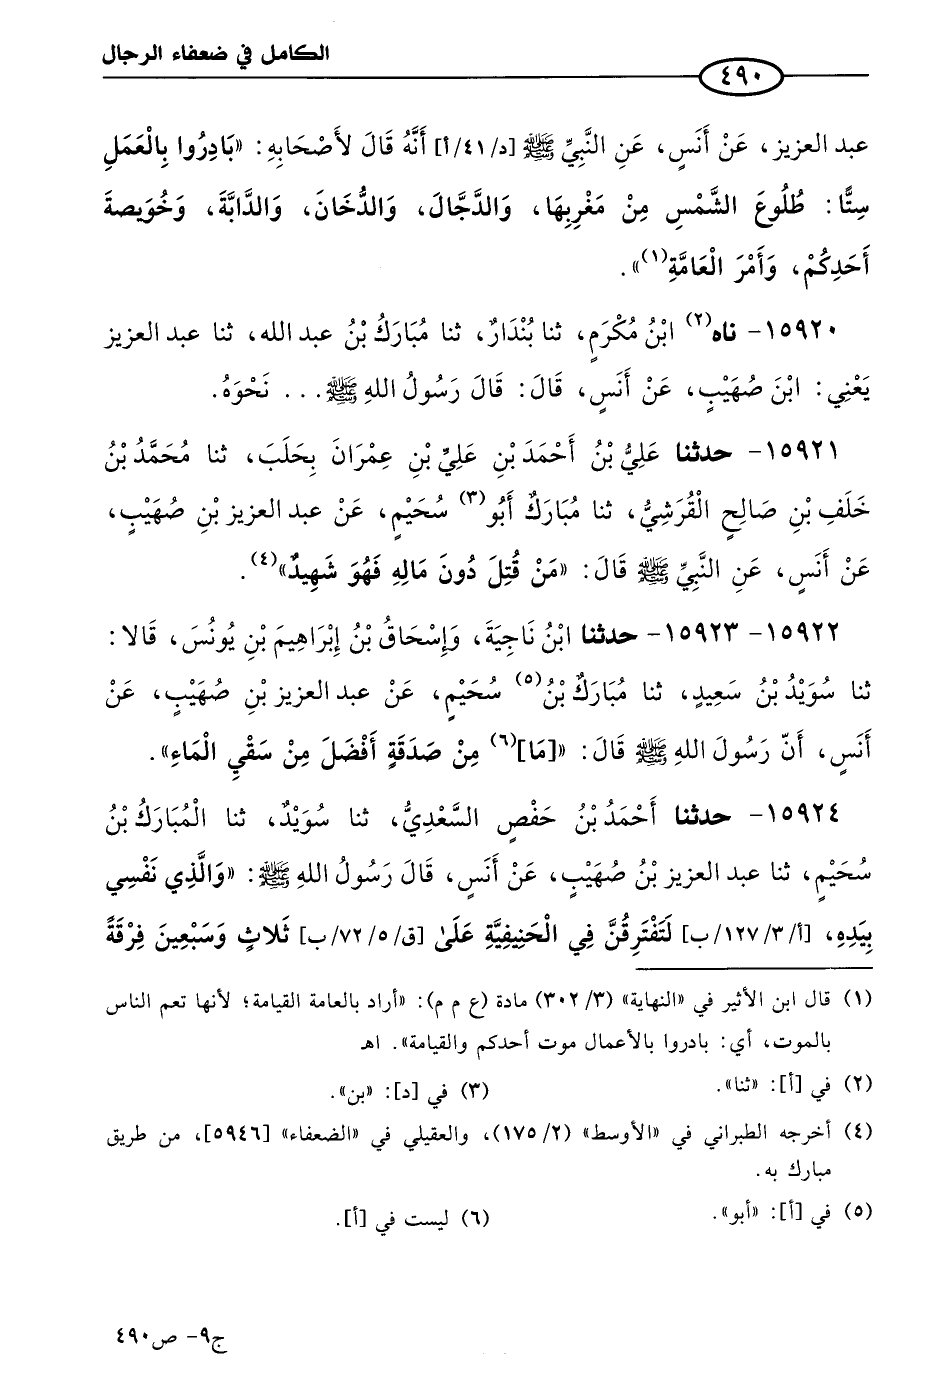 الكامل في ضعفاء الرجال
٤٩٠
عبد العزيز، عَنْ أَنَسٍ، عَنِ النَّبِيِّ ﷺ [د/٤١/أ] أَنَّهُ قَالَ لأَصْحَابِهِ: «بَادِرُوا بِالْعَمَلِ
سِتًّا: طُلُوعَ الشَّمْسِ مِنْ مَغْرِبِهَا، وَالدَّجَّالَ، وَالدُّخَانَ، وَالدَّابَّةَ، وَخُوَيصةَ
أَحَدِكُمْ، وَأَمْرَ الْعَامَّةِ(١)».
١٥٩٢٠- ناه(٢) ابْنُ مُكْرَمٍ، ثنا بُنْدَارٌ، ثنا مُبَارَكُ بْنُ عبد الله، ثنا عبد العزيز
يَعْنِي: ابْنَ صُهَيْبٍ، عَنْ أَنَسٍ، قَالَ: قَالَ رَسُولُ اللهِ ﷺ... نَحْوَهُ.
١٥٩٢١- حدثنا عَلِيُّ بْنُ أَحْمَدَ بْنِ عَلِيِّ بْنِ عِمْرَانَ بِحَلَبَ، ثنا مُحَمَّدُ بْنُ
خَلَفِ بْنِ صَالِحٍ الْقُرَشِيُّ، ثنا مُبَارَكٌ أَبُو(٣) سُحَيْمٍ، عَنْ عبد العزيز بْنِ صُهَيْبٍ،
عَنْ أَنَسٍ، عَنِ النَّبِيِّ ﷺ قَالَ: «مَنْ قُتِلَ دُونَ مَالِهِ فَهُوَ شَهِيدٌ»(٤).
١٥٩٢٢- ١٥٩٢٣- حدثنا ابْنُ نَاجِيَةَ، وَإِسْحَاقُ بْنُ إِبْرَاهِيمَ بْنِ يُونُسَ، قَالا:
ثنا سُوَيْدُ بْنُ سَعِيدٍ، ثنا مُبَارَكُ بْنُ(٥) سُحَيْمٍ، عَنْ عبد العزيز بْنِ صُهَيْبٍ، عَنْ
أَنَسٍ، أَنّ رَسُولَ اللهِ ﷺ قَالَ: «[مَا](٦) مِنْ صَدَقَةٍ أَفْضَلَ مِنْ سَقْيِ الْمَاءِ».
١٥٩٢٤- حدثنا أَحْمَدُ بْنُ حَفْصٍ السَّعْدِيُّ، ثنا سُوَيْدٌ، ثنا الْمُبَارَكُ بْنُ
سُحَيْمٍ، ثنا عبد العزيز بْنُ صُهَيْبٍ، عَنْ أَنَسٍ، قَالَ رَسُولُ اللهِ ﷺ: «وَالَّذِي نَفْسِي
بِيَدِهِ، [أ/٣/١٢٧/ب] لَتَفْتَرِقُنَّ فِي الْحَنِيفِيَّةِ عَلَىٰ [ق/٥/٧٢/ب] ثَلاثٍ وَسَبْعِينَ فِرْقَةً
(١) قال ابن الأثير في «النهاية» (٣٠٢/٣) مادة (ع م م): «أراد بالعامة القيامة؛ لأنها تعم الناس
بالموت، أي: بادروا بالأعمال موت أحدكم والقيامة». اهـ
(٢) في [أ]: «ثنا». (٣) في [د]: «بن».
(٤) أخرجه الطبراني في «الأوسط» (١٧٥/٢)، والعقيلي في «الضعفاء» [٥٩٤٦]، من طريق
مبارك به.
(٥) في [أ]: «أبو». (٦) ليست في [أ].
ج٩- ص٤٩٠